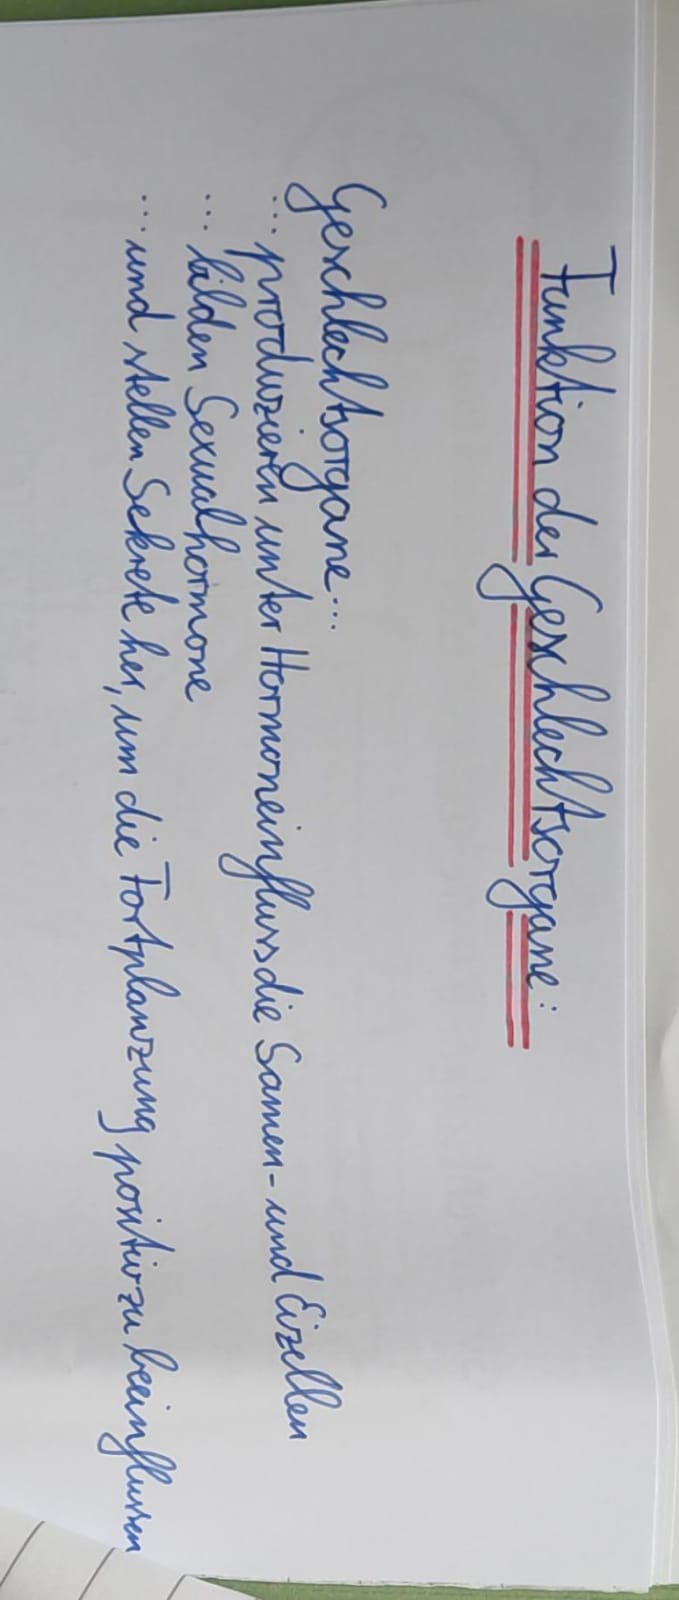 Funktion der Geschlechtsorgane:
Geschlechtsorgane...
... produzieren unter Hormoneinfluss die Samen- und Eizellen
... bilden Sexualhormone
... und stellen Sekrete her, um die Fortplanzung positiv zu beeinflussen